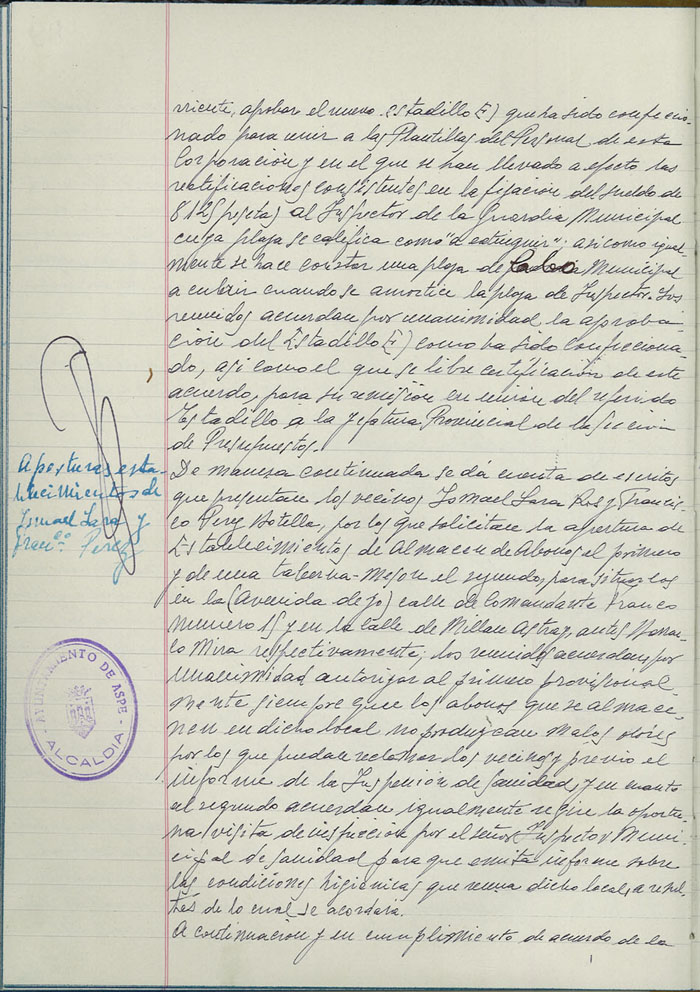 rriente, aprobar el nuevo Estadillo E) que ha sido confeccio-
nado para unir a las Plantillas del Personal de esta
Corporación y en el que se han llevado a efecto las
rectificaciones consistentes en la fijación del sueldo de
8.125 pesetas al Inspector de la Guardia Municipal
cuya plaza se califica como "a extinguir"; asi como igual-
mente se hace constar una plaza de Cabo Municipal
a cubrir cuando se amortice la plaza de Inspector. Los
reunidos acuerdan por unanimidad la aproba-
ción del Estadillo E) como ha sido confecciona-
do, asi como el que se libre certificación de este
acuerdo, para su remisión en unión del referido
Estadillo a la Jefatura Provincial de la Sección
de Presupuestos.
Aperturas esta-
blecimientos de
Ismael Lara y
Franco. Perez
De manera continuada se dá cuenta de escritos
que presentan los vecinos Ismael Lara Ros y Francis-
co Perez Botella, por los que solicitan la apertura de
Establecimientos de Almacen de Abonos el primero
y de una taberna-Meson el segundo, para situarlos
en la (Avenida de Jó) calle de Comandante Franco
numero 1) y en la calle de Millan Astray, antes
Mira respectivamente; los reunidos acuerdan por
unanimidad autorizar al primero provisional-
mente siempre que los abonos que se almace-
nen en dicho local no produzcan malos olores
por los que puedan reclamar los vecinos y previo el
informe de la Inspección de Sanidad, y en cuanto
al segundo acuerdan igualmente se gire la oportu-
na visita de inspección por el señor Inspector Muni-
cipal de Sanidad para que emita informe sobre
las condiciones higiénicas que reuna dicho local, a resul-
tas de lo cual se acordará.
A continuación y en cumplimiento de acuerdo de la
AYUNTAMIENTO DE ASPE
ALCALDIA